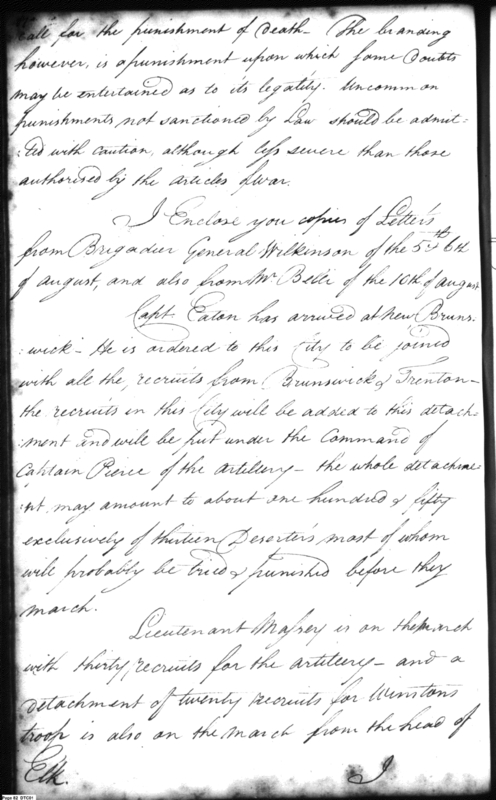 call for the punishment of death – The branding
however, is a punishment upon which some doubts
may be entertained as to its legality. Uncommon
punishments not sanctioned by Law should be admit-
:ted with caution, although less severe than those
authorised by the articles of war.
I Enclose you copies of Letter's
from Brigadier General Wilkinson of the 5th & 6th
of august, and also from Mr Belli of the 10th of august
Capt Eaton has arrived at new Bruns:
:wick – He is ordered to this City to be joined
with all the, recruits from Brunswick & Trenton –
the recruits in this City will be added to this detach-
:ment and will be put under the Command of
Captain Pierce of the artillery – the whole detachme
:nt may amount to about one hundred & fifty
exclusively of thirteen Deserter's most of whom
will probably be tried & punished before they
march.
Lieutenant Massey is on the march
with thirty, recruits for the artillery – and a
detachment of twenty recruits for Winston's
troop is also on the march from the head of
Elk.
I
Page 82 DTC01